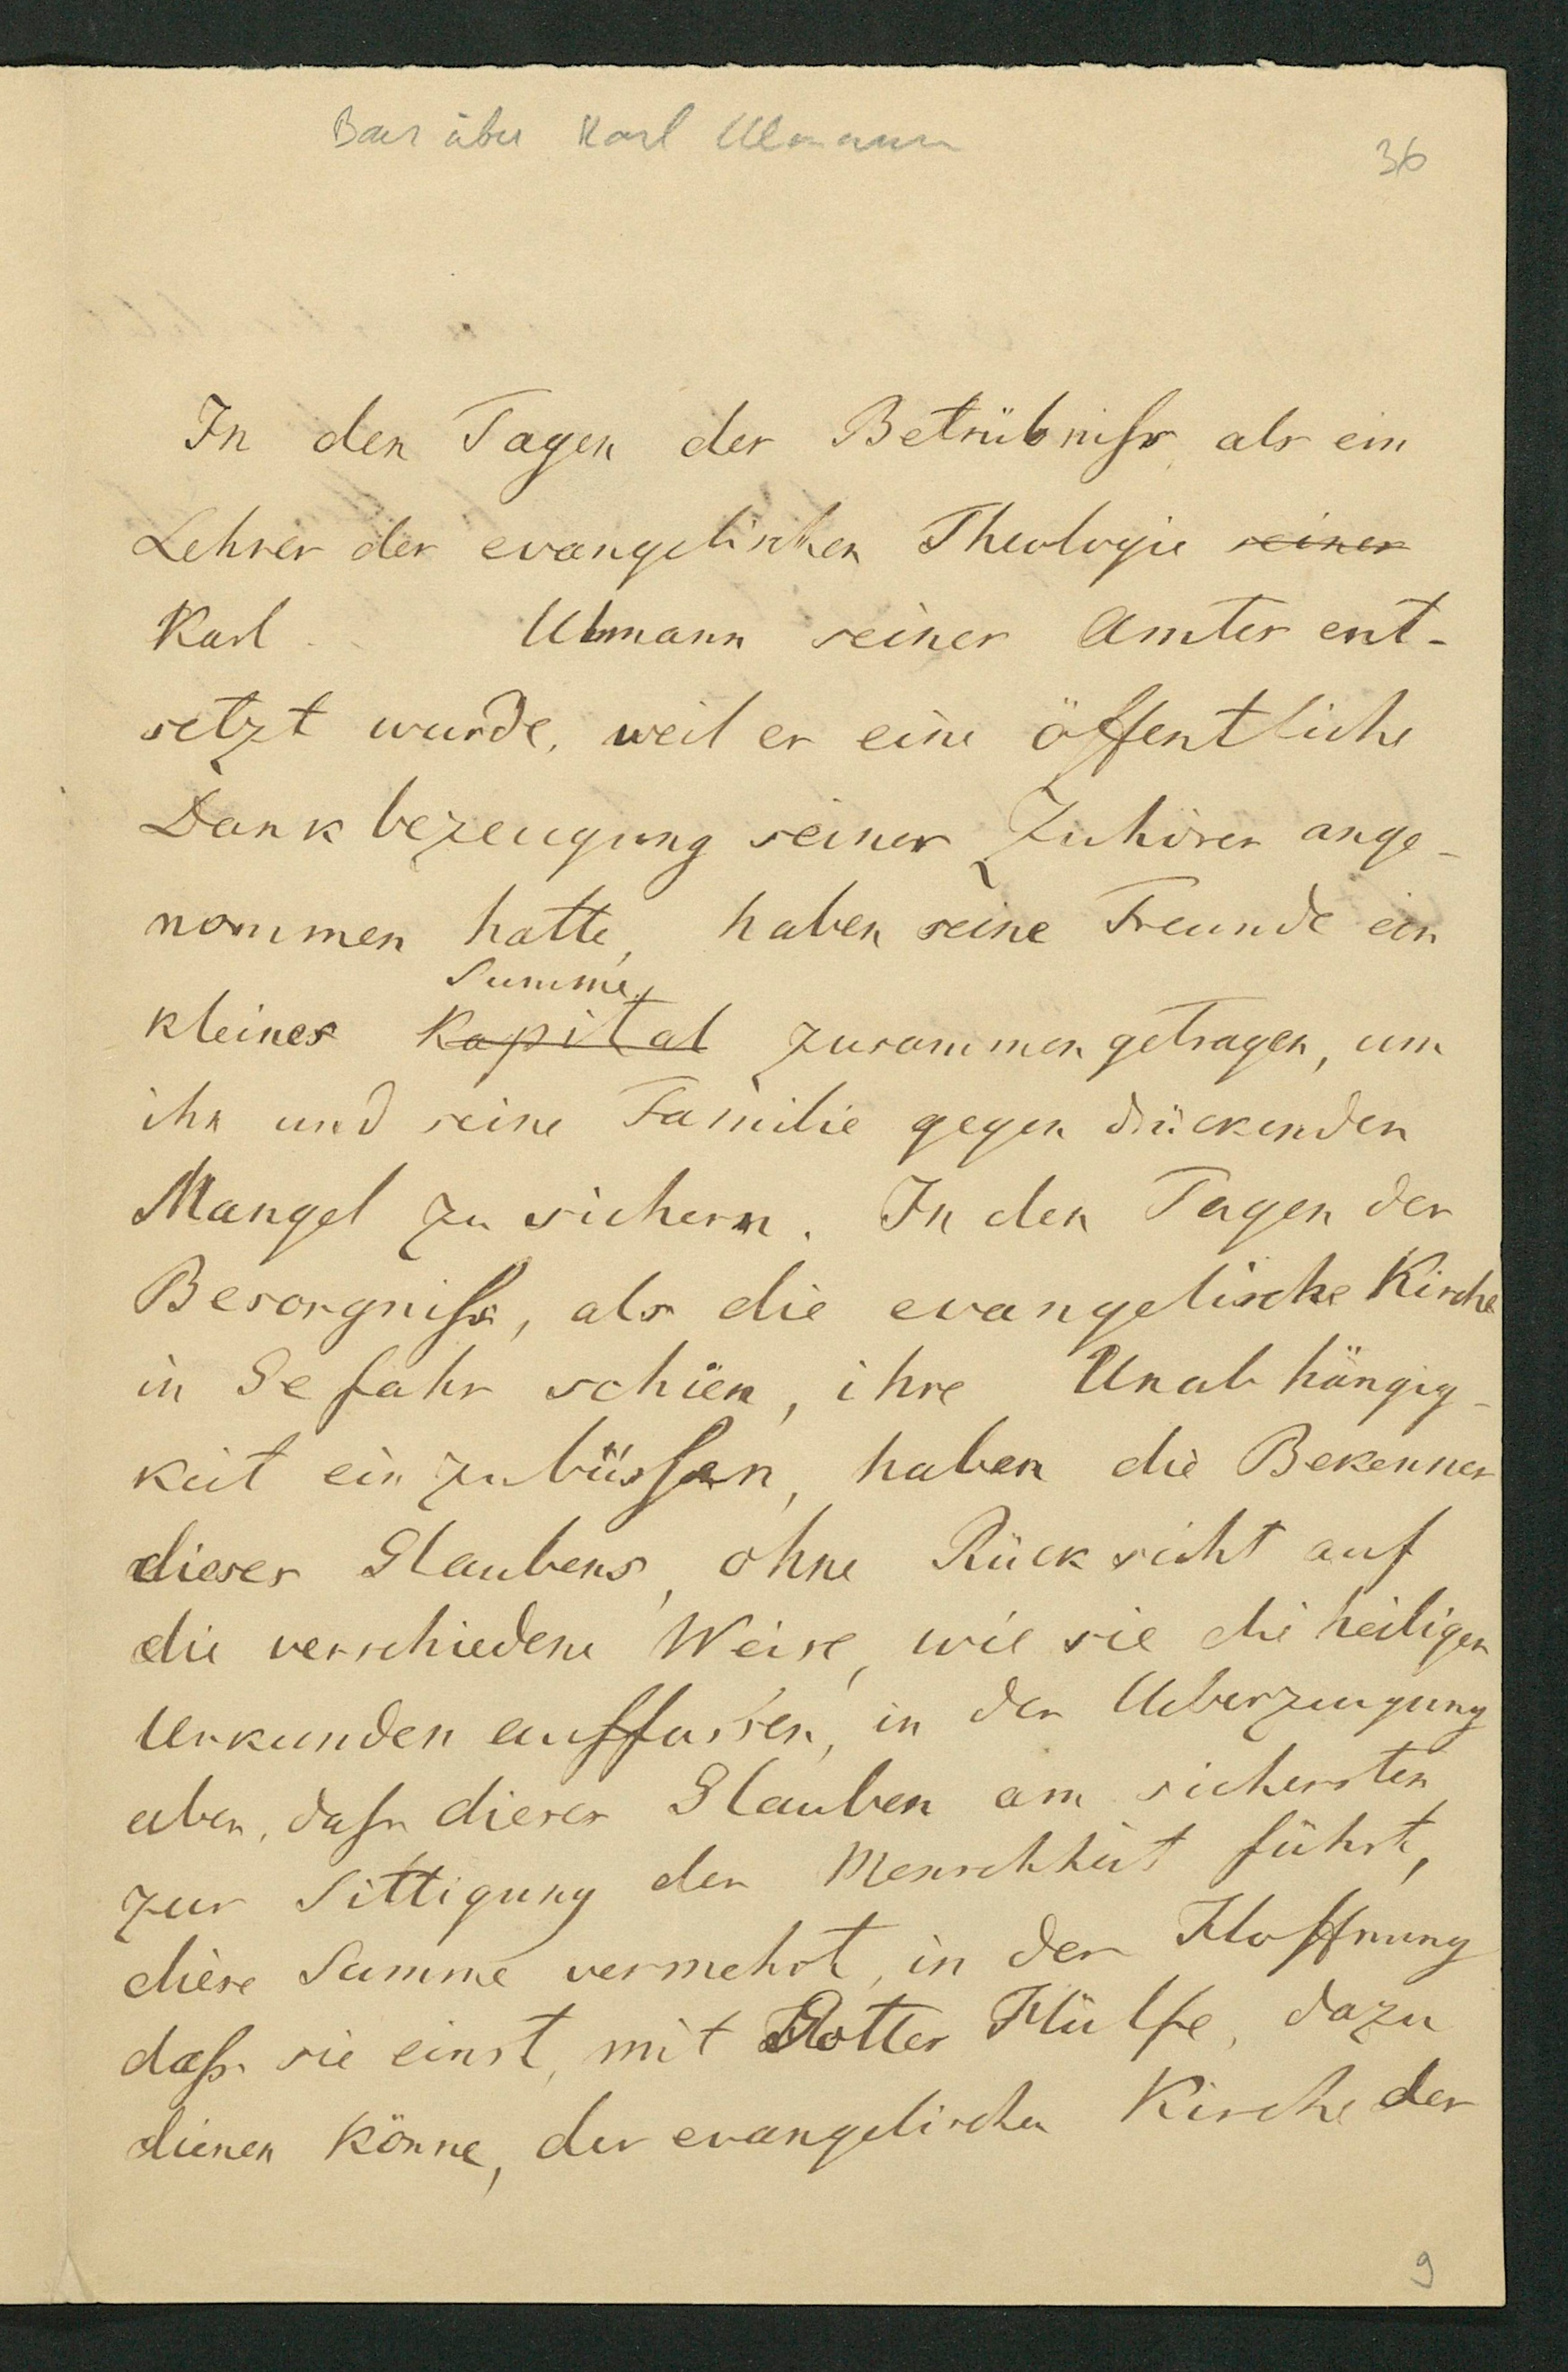 Baer über Karl Ulmann
36
In den Tagen der Betrübniss, als ein
Lehrer der evangelischen Theologie seiner
Karl Ulmann seiner Amtes ent-
setzt wurde, weil er eine öffentliche
Dankbezeugung seiner Zuhörer ange-
nommen hatte, haben seine Freunde ein
Summe
kleines Kapital zusammengetragen, um
ihn und seine Familie gegen drückenden
Mangel zu sichern. In den Tagen der
Besorgniss, als die evangelische Kirche
in Gefahr schien, ihre Unabhängig-
keit einzubüssen, haben die Bekenner
dieses Glaubens, ohne Rücksicht auf
die verschiedene Weise, wie sie die heiligen
Urkunden auffassen, in der Ueberzeugung
aber, dass dieser Glauben am sichersten
zur Sittigung der Menschheit führt,
diese Summe vermehrt, in der Hoffnung
dass sie einst, mit Gottes Hülfe, dazu
dienen könne, der evangelischen Kirche der
9